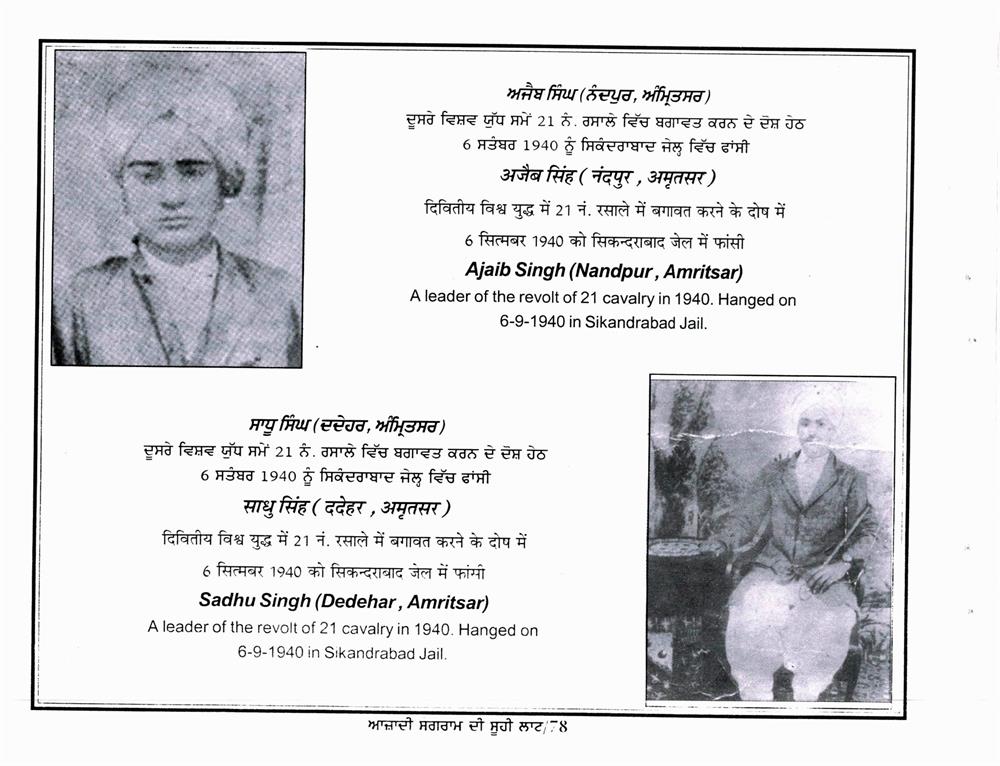 ਅਜੈਬ ਸਿੰਘ (ਨੰਦਪੁਰ, ਅੰਮ੍ਰਿਤਸਰ)
ਦੂਸਰੇ ਵਿਸ਼ਵ ਯੁੱਧ ਸਮੇਂ 21 ਨੰ. ਰਸਾਲੇ ਵਿੱਚ ਬਗਾਵਤ ਕਰਨ ਦੇ ਦੋਸ਼ ਹੇਠ
6 ਸਤੰਬਰ 1940 ਨੂੰ ਸਿਕੰਦਰਾਬਾਦ ਜੇਲ੍ਹ ਵਿੱਚ ਫਾਂਸੀ
अजैब सिंह ( नंदपुर , अमृतसर )
दिवितीय विश्व युद्ध में 21 नं. रसाले में बगावत करने के दोष में
6 सितम्बर 1940 को सिकन्दराबाद जेल में फांसी
Ajaib Singh (Nandpur , Amritsar)
A leader of the revolt of 21 cavalry in 1940. Hanged on
6-9-1940 in Sikandrabad Jail.
ਸਾਧੂ ਸਿੰਘ (ਦਦੇਹਰ, ਅੰਮ੍ਰਿਤਸਰ)
ਦੂਸਰੇ ਵਿਸ਼ਵ ਯੁੱਧ ਸਮੇਂ 21 ਨੰ. ਰਸਾਲੇ ਵਿੱਚ ਬਗਾਵਤ ਕਰਨ ਦੇ ਦੋਸ਼ ਹੇਠ
6 ਸਤੰਬਰ 1940 ਨੂੰ ਸਿਕੰਦਰਾਬਾਦ ਜੇਲ੍ਹ ਵਿੱਚ ਫਾਂਸੀ
साधु सिंह ( ददेहर , अमृतसर )
दिवितीय विश्व युद्ध में 21 नं. रसाले में बगावत करने के दोष में
6 सितम्बर 1940 को सिकन्दराबाद जेल में फांसी
Sadhu Singh (Dedehar , Amritsar)
A leader of the revolt of 21 cavalry in 1940. Hanged on
6-9-1940 in Sikandrabad Jail.
ਆਜ਼ਾਦੀ ਸਗਰਾਮ ਦੀ ਸੂਹੀ ਲਾਟ/78